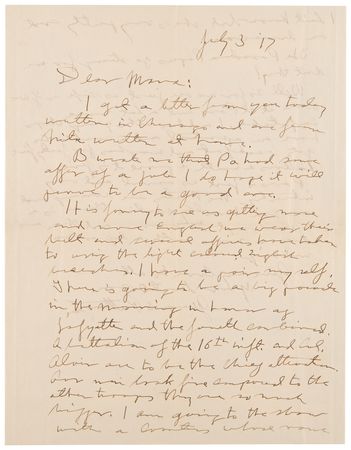 July 3 '17
Dear Mama:
I got a letter from you today
written in Chicago and one from
written at home.
B wrote me that Pa had some
offer of a job. I do hope it will
prove to be a good one.
It is funny to see us getting more
and more English we wear their
belt and several officers have taken
to using the light colored English
breeches. I have a pair my self.
There is going to be a big parade
in the morning in honor of
Lafayette and the fourth combined.
A battalion of the 16th inft. and Col.
are to be the chief attraction
our men look fine compared to the
other troops they are so much
bigger. I am going to the show
with a whose name